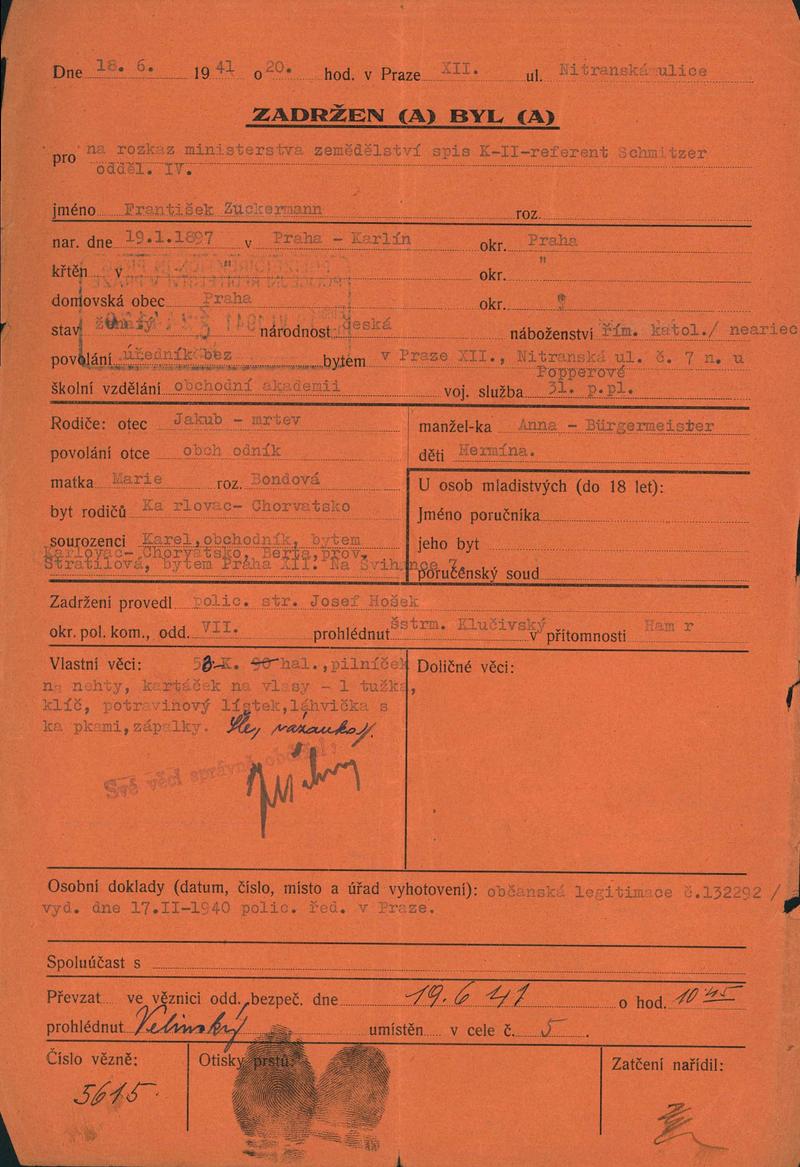 Dne 18. 6. 1941 o 20. hod. v Praze XII. ul. Nitranská ulice
ZADRŽEN (A) BYL (A)
pro na rozkaz ministerstva zemědělství spis K-II-referent Schmitzer
odděl. IV.
jméno František Zuckermann roz.
nar. dne 19.1.1897 v Praha - Karlín okr. Praha
křtěn v " okr. "
domovská obec Praha okr.
stav ženatý národnost česká náboženství řím. katol./ neariec
povolání úředník bez bytem v Praze XII., Nitranská ul. č. 7 n. u
Popperové
školní vzdělání obchodní akademii voj. služba 31. p.pl.
Rodiče: otec Jakub - mrtev
povolání otce obch odník
matka Marie roz. Bondová
byt rodičů Ka rlovac- Chorvatsko
sourozenci Karel, obchodník, bytem
Karlovac- Chorvatsko, Berta, prov.
Stratilová, bytem Praha XII. Na Švihance 7.
manžel-ka Anna - Bürgermeister
děti Hermína.
U osob mladistvých (do 18 let):
Jméno poručníka
jeho byt
poručenský soud
Zadržení provedl polic. str. Josef Hošek
okr. pol. kom., odd. VII. prohlédnut šstrm. Klučivský v přítomnosti Ham r
Vlastní věci: K. hal., pilníček
na nehty, kartáček na vlasy - 1 tužka,
klíč, potravinový lístek, láhvička s
ka pkami, zápalky.
Své věci správně
Doličné věci:
Osobní doklady (datum, číslo, místo a úřad vyhotovení): občanská legitimace č.132292 /
vyd. dne 17.II-1940 polic. řed. v Praze.
Spoluúčast s
Převzat ve věznici odd. bezpeč. dne 19. 6 41 o hod. 10 45
prohlédnut Velinský umístěn v cele č. 5.
Číslo vězně:
5615.
Otisky prstů:
Zatčení nařídil: